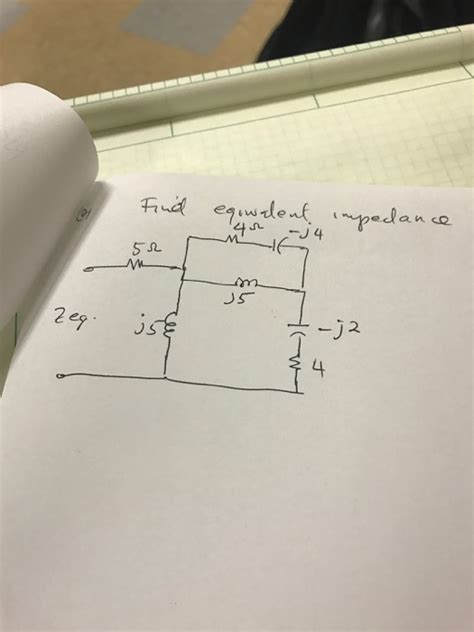 Q1
Find equivalent impedance
4Ω -j4
5Ω
j5
Zeq. j5 -j2
4